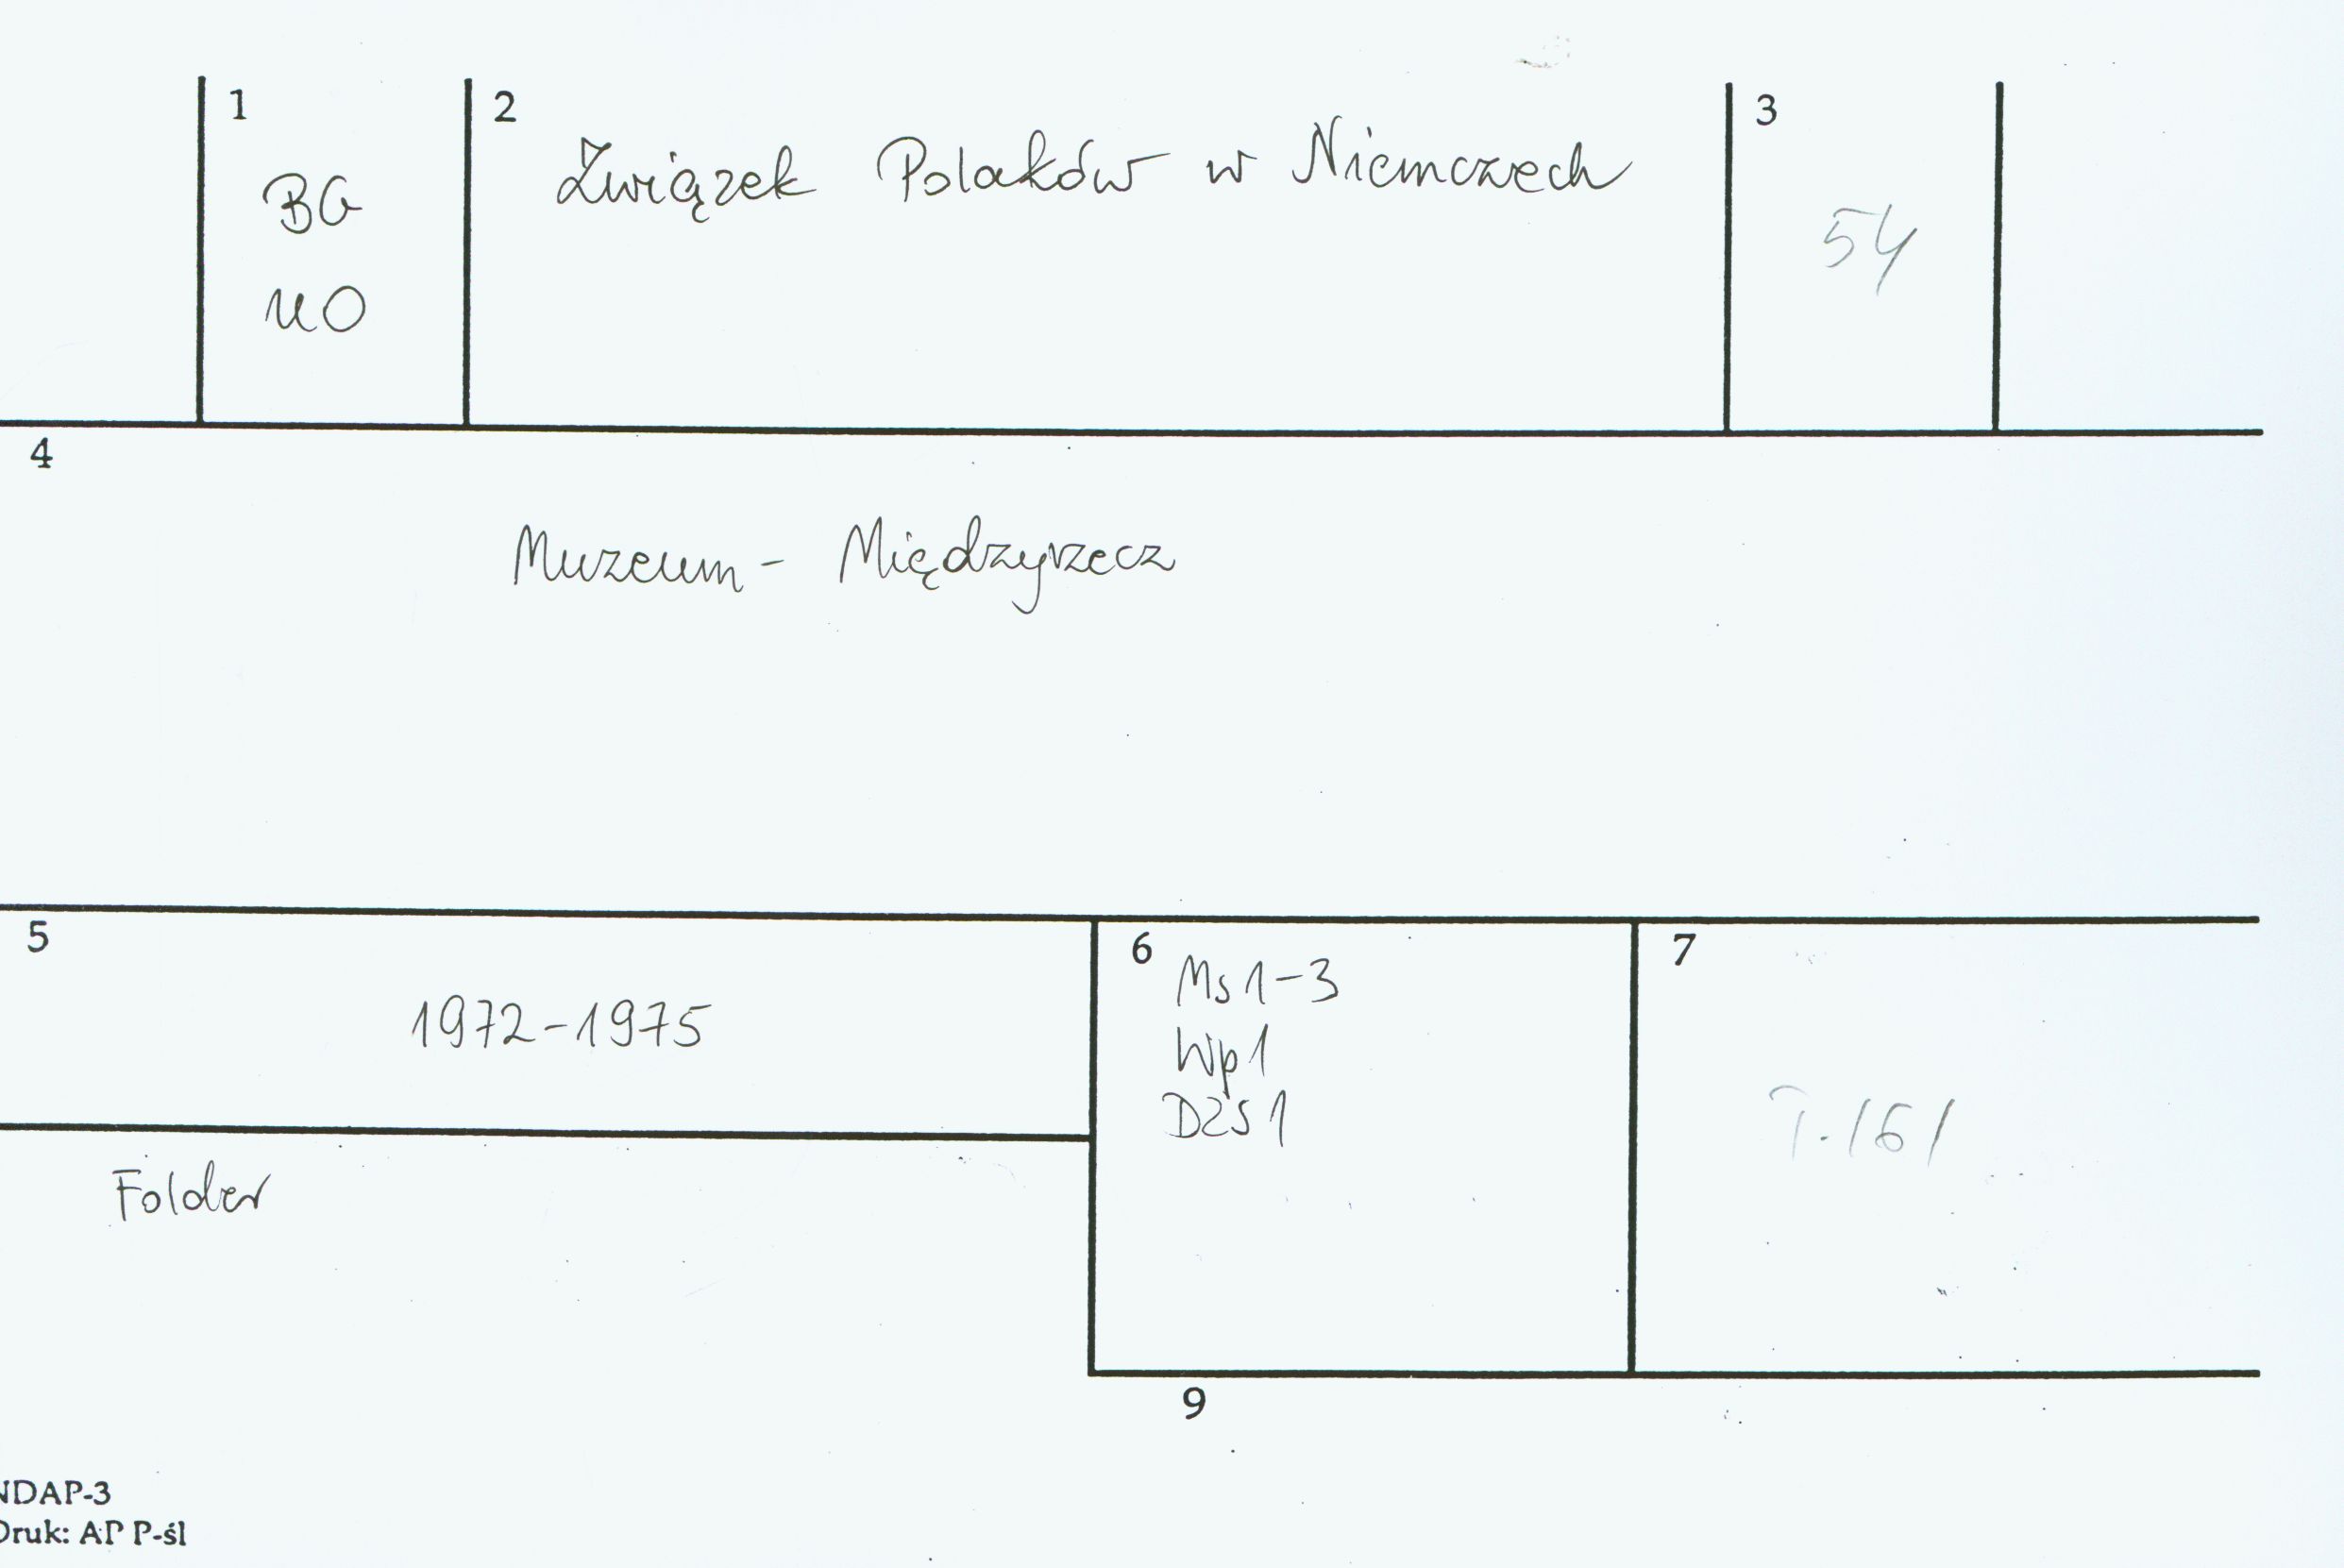 1
BG
UO
2
Związek Polaków w Niemczech
3
54
4
Muzeum - Międzyrzecz
5
1972-1975
6
Ms 1-3
Wp1
DŻS 1
7
T.161
Folder
9
NDAP-3
Druk: AP P-śl